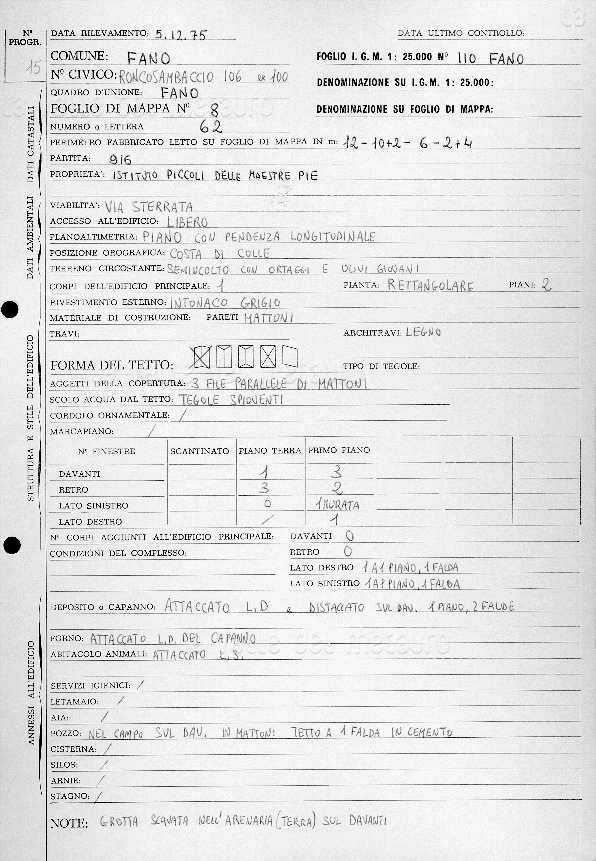 N° PROGR. 15
DATA RILEVAMENTO: 5.12.75 DATA ULTIMO CONTROLLO:
COMUNE: FANO FOGLIO I. G. M. 1: 25.000 N° 110 FANO
N° CIVICO: RONCOSAMBACCIO 106 ex 100 DENOMINAZIONE SU I. G. M. 1: 25.000:
QUADRO D'UNIONE: FANO
FOGLIO DI MAPPA N° 8 DENOMINAZIONE SU FOGLIO DI MAPPA:
NUMERO o LETTERA 62
PERIMETRO FABBRICATO LETTO SU FOGLIO DI MAPPA IN m: 12-10+2-6-2+4
PARTITA: 916
PROPRIETA': ISTITUTO PICCOLI DELLE MAESTRE PIE
DATI CATASTALI
VIABILITA': VIA STERRATA
ACCESSO ALL'EDIFICIO: LIBERO
PLANOALTIMETRIA: PIANO CON PENDENZA LONGITUDINALE
POSIZIONE OROGRAFICA: COSTA DI COLLE
TERRENO CIRCOSTANTE: SEMINCOLTO CON ORTAGGI E OLIVI GIOVANI
DATI AMBIENTALI
CORPI DELL'EDIFICIO PRINCIPALE: 1 PIANTA: RETTANGOLARE PIANI: 2
RIVESTIMENTO ESTERNO: INTONACO GRIGIO
MATERIALE DI COSTRUZIONE: PARETI MATTONI
TRAVI: ARCHITRAVI: LEGNO
FORMA DEL TETTO: TIPO DI TEGOLE:
AGGETTI DELLA COPERTURA: 3 FILE PARALLELE DI MATTONI
SCOLO ACQUA DAL TETTO: TEGOLE SPIOVENTI
CORDOLO ORNAMENTALE: /
MARCAPIANO: /
N° FINESTRE SCANTINATO PIANO TERRA PRIMO PIANO
DAVANTI 1 3
RETRO 3 2
LATO SINISTRO 0 1 MURATA
LATO DESTRO / 1
STRUTTURA E STILE DELL'EDIFICIO
N° CORPI AGGIUNTI ALL'EDIFICIO PRINCIPALE: DAVANTI 0
CONDIZIONI DEL COMPLESSO: RETRO 0
LATO DESTRO 1 A 1 PIANO, 1 FALDA
LATO SINISTRO 1 A 1 PIANO, 1 FALDA
DEPOSITO o CAPANNO: ATTACCATO L.D e DISTACCATO SUL DAV. 1 PIANO, 2 FALDE
FORNO: ATTACCATO L.D. DEL CAPANNO
ABITACOLO ANIMALI: ATTACCATO L.S.
SERVIZI IGIENICI: /
LETAMAIO: /
AIA: /
POZZO: NEL CAMPO SUL DAV. IN MATTONI TETTO A 1 FALDA IN CEMENTO
CISTERNA: /
SILOS: /
ARNIE: /
STAGNO: /
ANNESSI ALL'EDIFICIO
NOTE: GROTTA SCAVATA NELL'ARENARIA (TERRA) SUL DAVANTI